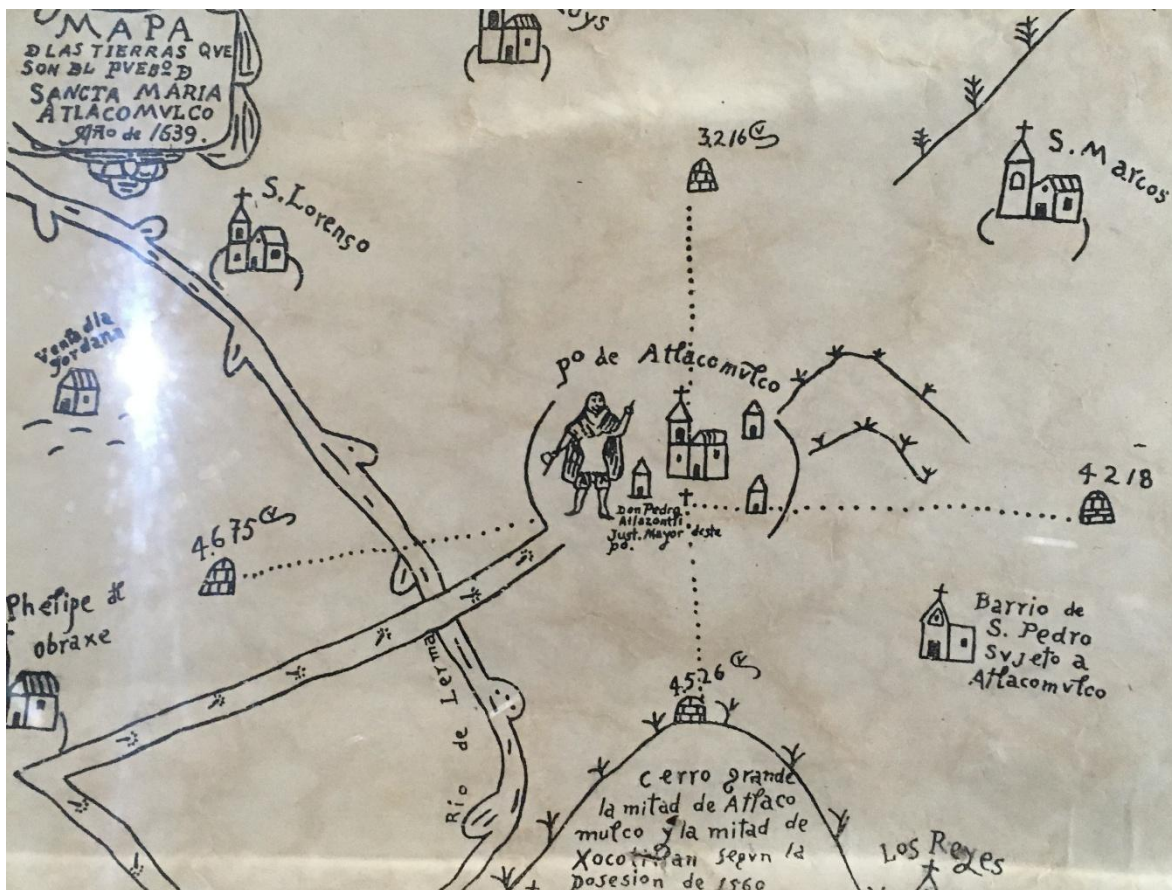 MAPA
DLAS TIERRAS QVE
SON DL PVEBº D
SANCTA MARIA
ATLACOMVLCO
Año de 1639.
3.216
S. Marcos
S. Lorenso
Venta dla
Jordana
pº de Atlacomvlco
Don Pedro
Atlazontli
Just. Mayor deste
po.
4.675
4218
Phelipe
obraxe
Río de Lerma
Barrio de
S. Pedro
svjeto a
Atlacomvlco
4.526
cerro grande
la mitad de Atlaco
mulco y la mitad de
segvn la
posesion de 1560
Los Reyes